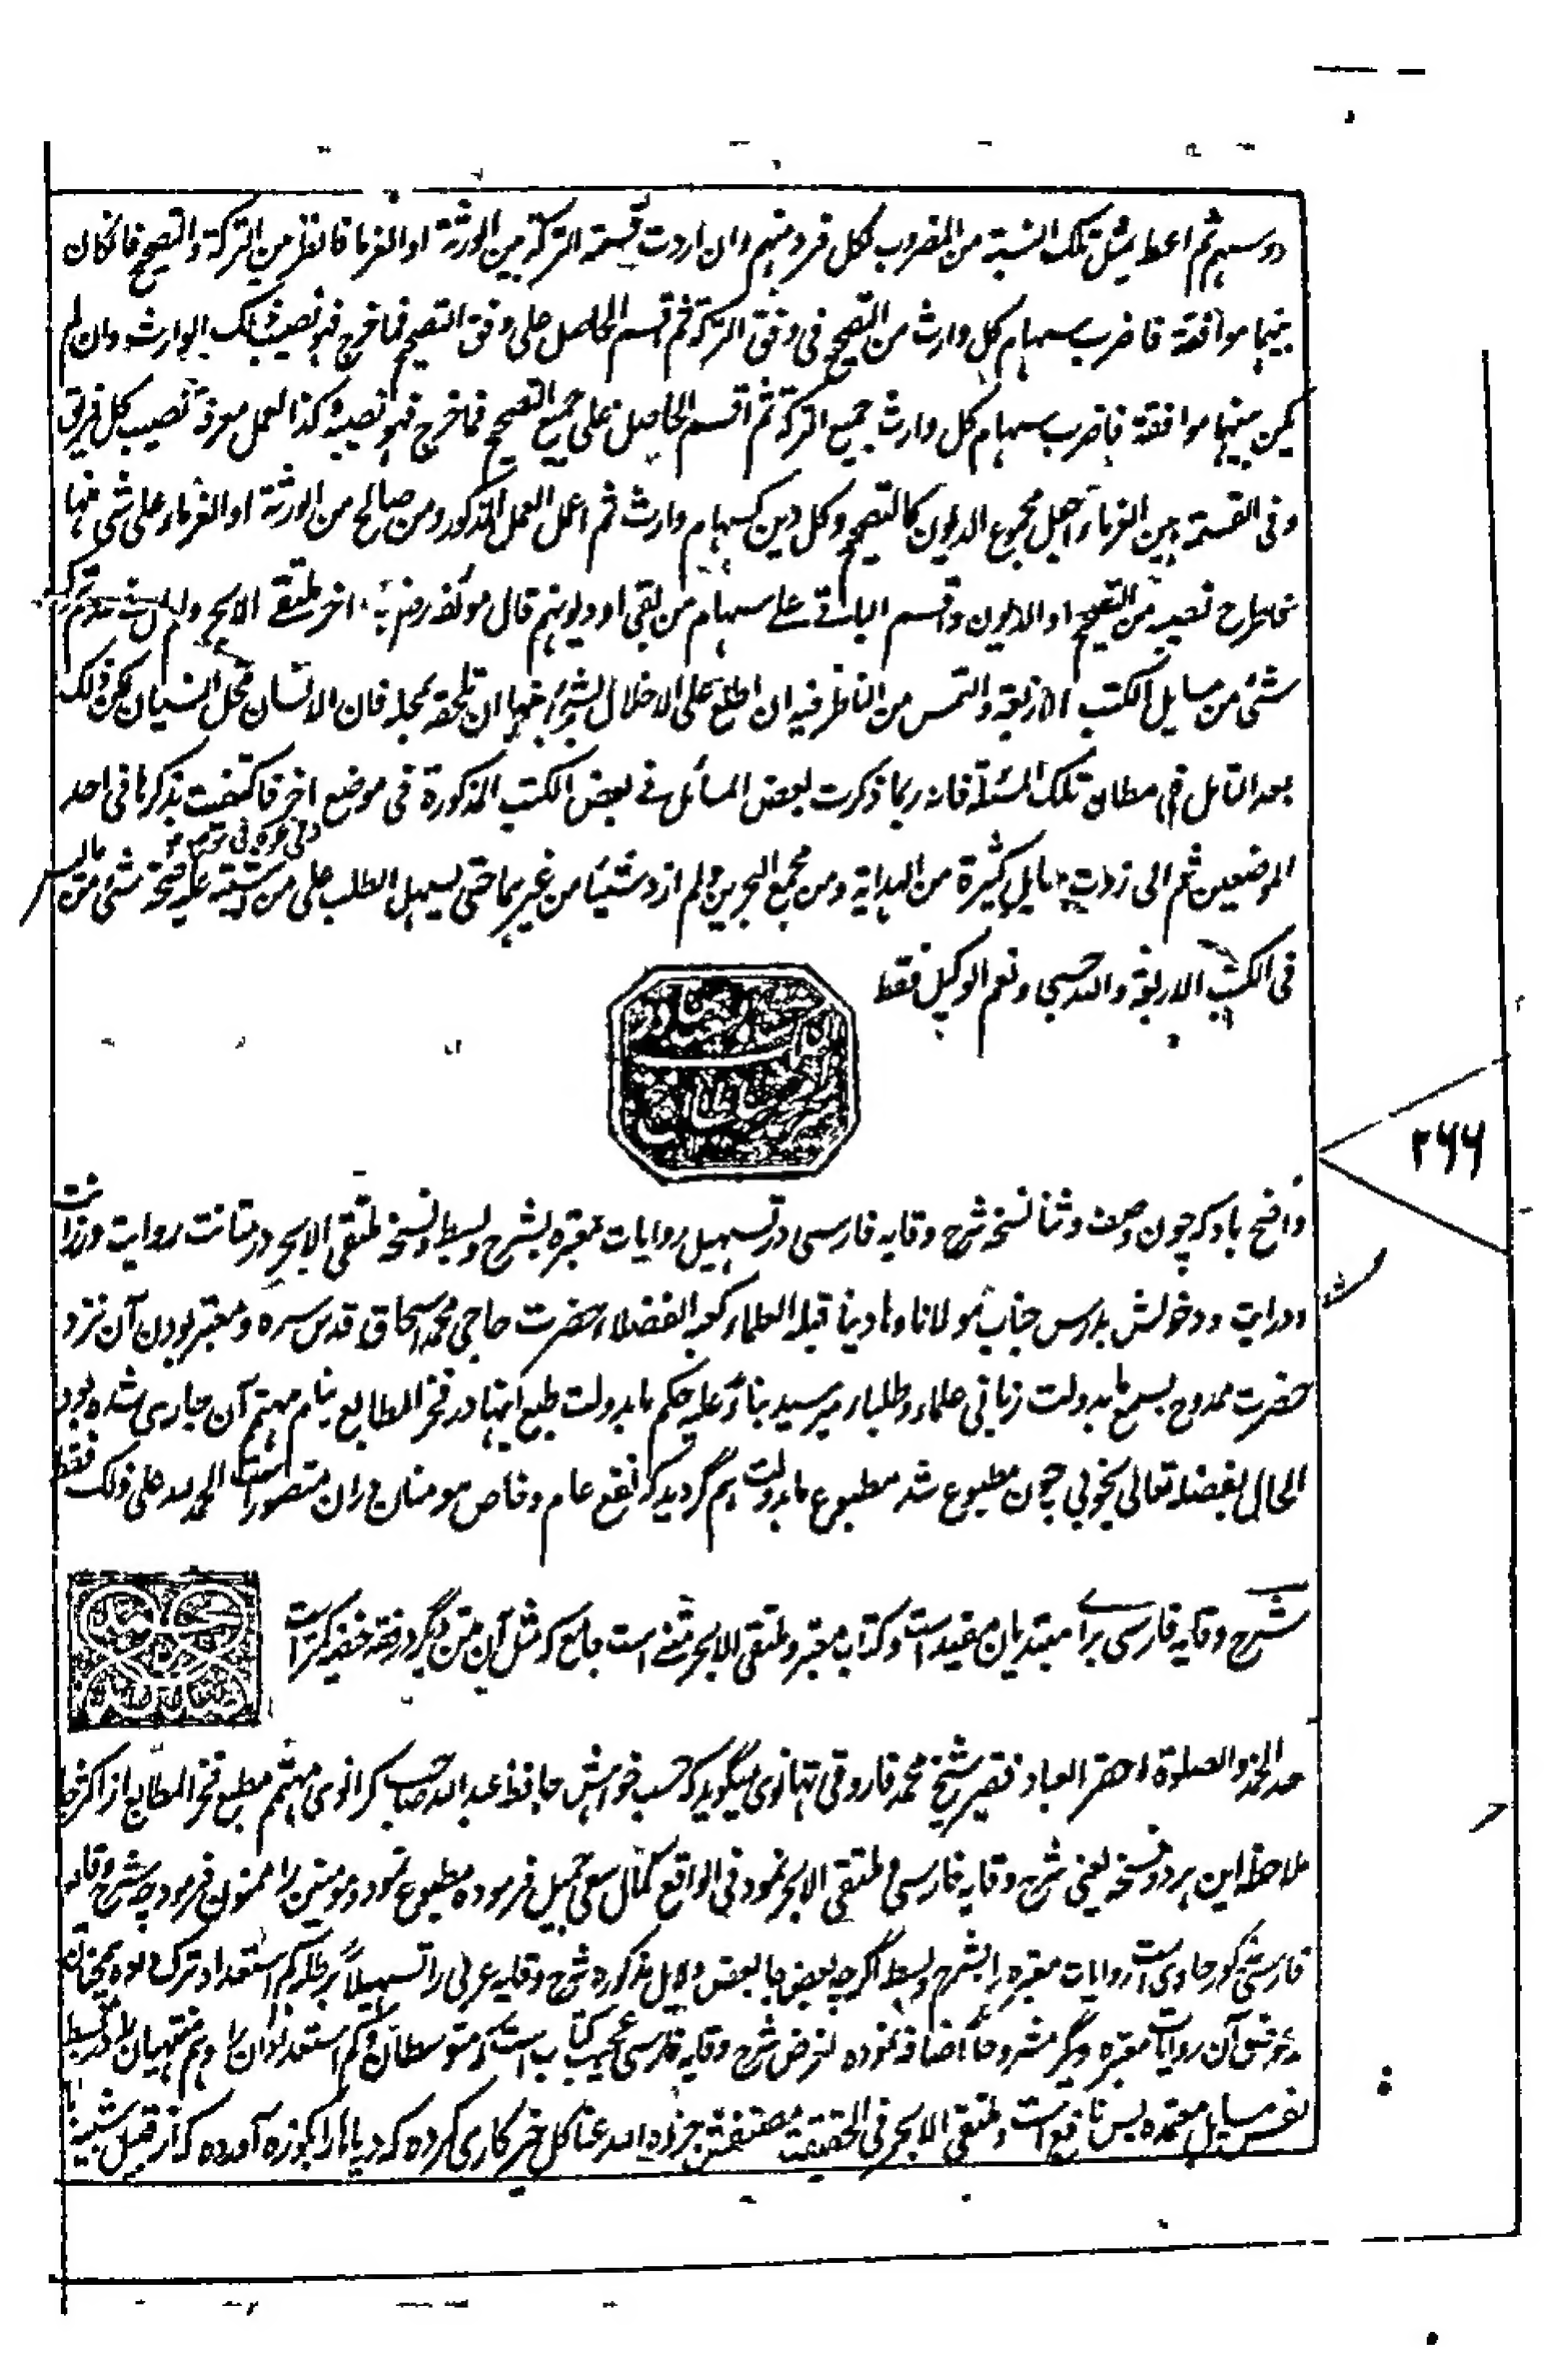 دوسهم ثم اعط بمثل تلك النسبة من المضروب لكل فرد منهم وان اردت قسمة التركة بين الورثة او الغرما فانظر من التركة والتصحيح فانكان
بينهما موافقة فاضرب سهام كل وارث من التصحيح فى وفق التركة ثم اقسم الحاصل على وفق التصحيح فما خرج فهو نصيب ذلك الوارث وان لم
يكن بينهما موافقة فاضرب سهام كل وارث جميع التركة ثم اقسم الحاصل على جميع التصحيح فما خرج فهو نصيبه وكذا العمل لمعرفة نصيب كل فريق
وفى القسمة بين الغرماء اجعل مجموع الديون كالتصحيح وكل دين كسهام وارث ثم اعمل العمل المذكور ومن صالح من الورثة او الغرماء على شى منها
فاطرح نصيبه من التصحيح او الديون وقسم الباقے علے سهام من بقى او ديونهم قال مؤلفه اخر ملتقے الابحر ولم
شئ من مسايل الكتب الاربعة والتمس من الناظر فيه ان اطلع على الاخلال بشئ منها ان يلحقه بمحله فان الانسان محل النسيان ليكن ذلك
بعد التامل فى مظان تلك المسئلة فانه ربما ذكرت بعض المسائل فے بعض الكتب المذكورة فى موضع اخر فاكتفيت بذكرها فى احد
الموضعين ثم انى زدت مسايل كثيرة من الهداية ومن مجمع البحرين ولم ازد شيئا من غيرهما حتى يسهل الطلب على من يشتبه عليه صحة شئ مما ليس
فى الكتب الاربعة والله حسبى ونعم الوكيل فقط
۲۶۶
واضح باد كه چون وصف وثنا نسخه شرح وقايه فارسى در تسهيل روايات معتبره بشرح وبسط ونسخه ملتقى الابحر در متانت روايت ورزانت
ودرايت ودخولش بدرس جناب مولانا وهادينا قبلة العلماء كعبة الفضلاء حضرت حاجى محمد اسحاق قدس سره ومعتبر بودن آن نزد
حضرت ممدوح بسمع مابدولت زبانى علماء وطلباء ميرسيد بناءً عليه حكم مابدولت طبع اينها در فخر المطابع بنام مهتمم آن جارى شده بود
الحال بفضله تعالى بخوبى چون مطبوع شد مطبوع مابدولت هم گرديد كه نفع عام وخاص مومنان دران متصور است الحمد لله على ذلك فقط
شرح وقايه فارسى براے مبتديان مفيد است وكتاب معتبر وملتقى الابحر متنے است جامع كه مثل آن متن ديگر در فقه حنفيه كمتر است
بعد الحمد والصلوة احقر العباد فقير شيخ محمد فاروقى تهانوى ميگويد كه حسب خواهش حافظ عبد الله صاحب كرانوى مهتمم مطبع فخر المطابع از اكثر جا
ملاحظه اين هردو نسخه يعنى شرح وقايه فارسى وملتقى الابحر نمود فى الواقع بكمال سعى جميل فرموده مطبوع نمود ومومنين را ممنون فرمود چه شرح وقايه
فارسى مذكور حاوى است روايات معتبره را بشرح وبسط اگرچه بعض جا بعض دلايل مذكوره شرح وقايه عربى را تسهيلاً بر طلبه كم استعداد ترك داده
بعوض آن روايات معتبره ديگر مشروحاً اضافه نموده لغرض شرح وقايه فارسى عجيب كتاب است كه متوسطان وكم استعدادان را وهم منتهيان را در بسط
نفس مسايل معتمده بس نافع است وملتقى الابحر فى الحقيقت مصنفش جزاه الله عنا كل خير كارى كرده كه درياها را بكوزه آورده كه از قبيل